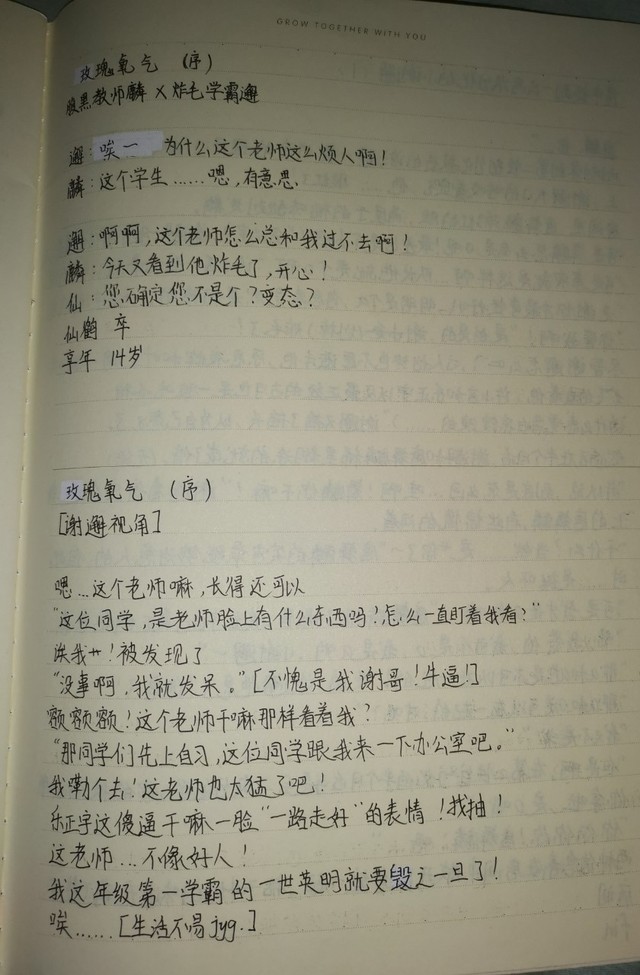 GROW TOGETHER WITH YOU
玫瑰氧气 (序)
腹黑教师麟 × 炸毛学霸邂
邂:唉一 为什么这个老师这么烦人啊!
麟:这个学生……嗯,有意思
邂:啊啊,这个老师怎么总和我过不去啊!
麟:今天又看到他炸毛了,开心!
仙:您确定您不是个?变态?
仙鹤 卒
享年 14岁
玫瑰氧气 (序)
[谢邂视角]
嗯…这个老师嘛,长得还可以
“这位同学,是老师脸上有什么东西吗?怎么一直盯着我看?”
淏我艹!被发现了
“没事啊,我就发呆。”[不愧是我谢哥!牛逼!]
额额额!这个老师干嘛那样看着我?
“那同学们先上自习,这位同学跟我来一下办公室吧。”
我嘞个去!这老师也太猛了吧!
乐正宇这傻逼干嘛一脸“一路走好”的表情!找抽!
这老师…不像好人!
我这年级第一学霸的一世英明就要毁之一旦了!
唉……[生活不易jyg.]